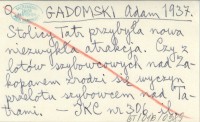 GADOMSKI Adam 1937.
Stolicy Tatr przybyła nowa
niezwykła atrakcja. Czy z
lotów szybowcowych nad Za-
kopanem zrodzi się wyczyn
przelotu szybowcem nad Ta-
trami. — IKC nr 306